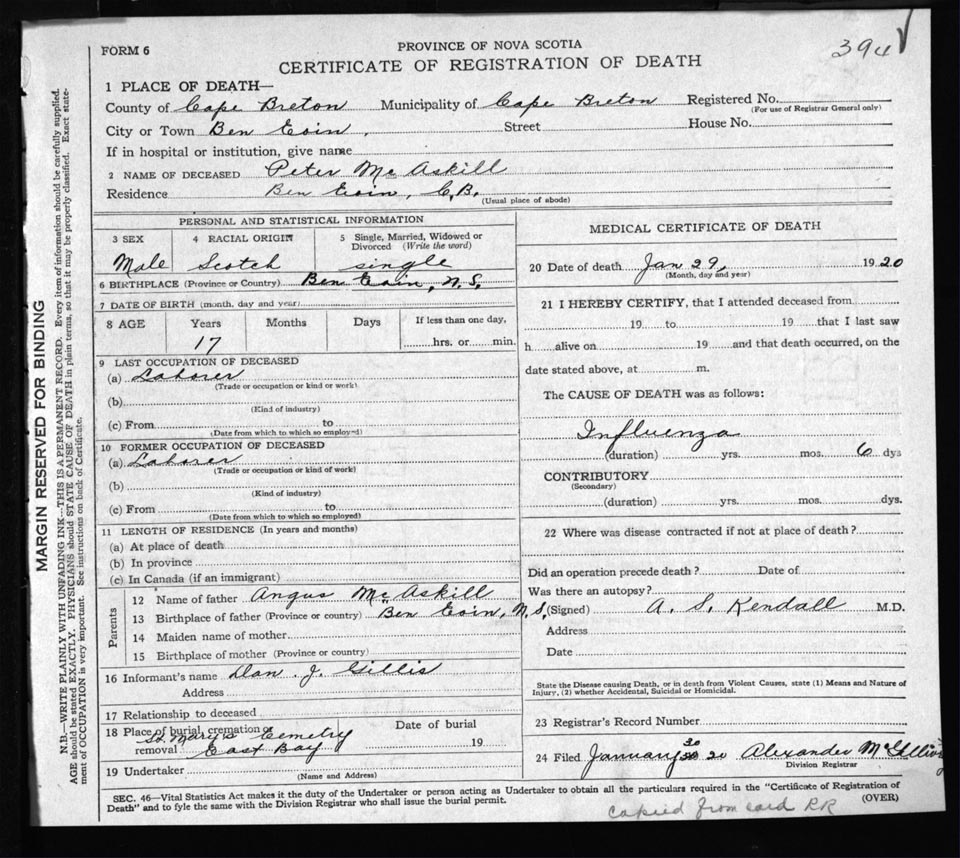 394
FORM 6
PROVINCE OF NOVA SCOTIA
CERTIFICATE OF REGISTRATION OF DEATH
1 PLACE OF DEATH—
County of Cape Breton Municipality of Cape Breton Registered No.
(For use of Registrar General only)
City or Town Ben Eoin, Street House No.
If in hospital or institution, give name
2 NAME OF DECEASED Peter McAskill
Residence Ben Eoin, C.B.
(Usual place of abode)
PERSONAL AND STATISTICAL INFORMATION
3 SEX 4 RACIAL ORIGIN 5 Single, Married, Widowed or Divorced (Write the word)
Male Scotch single
6 BIRTHPLACE (Province or Country) Ben Eoin, N.S.
7 DATE OF BIRTH (month, day and year)
8 AGE Years Months Days If less than one day,
17 hrs. or min.
9 LAST OCCUPATION OF DECEASED
(a) Laborer
(Trade or occupation or kind or work)
(b)
(Kind of industry)
(c) From to
(Date from which to which so employed)
10 FORMER OCCUPATION OF DECEASED
(a) Laborer
(Trade or occupation or kind of work)
(b)
(Kind of industry)
(c) From to
(Date from which to which so employed)
11 LENGTH OF RESIDENCE (In years and months)
(a) At place of death
(b) In province
(c) In Canada (if an immigrant)
Parents
12 Name of father Angus McAskill
13 Birthplace of father (Province or country) Ben Eoin, N.S.
14 Maiden name of mother
15 Birthplace of mother (Province or country)
16 Informant's name Dan. J. Gillis
Address
17 Relationship to deceased
18 Place of burial, cremation or removal St Mary's Cemetry East Bay
Date of burial 19
19 Undertaker
(Name and Address)
MEDICAL CERTIFICATE OF DEATH
20 Date of death Jan 29, 1920
(Month, day and year)
21 I HEREBY CERTIFY, that I attended deceased from
19 to 19 that I last saw
h alive on 19 and that death occurred, on the
date stated above, at m.
The CAUSE OF DEATH was as follows:
Influenza
(duration) yrs. mos. 6 dys
CONTRIBUTORY
(Secondary)
(duration) yrs. mos. dys.
22 Where was disease contracted if not at place of death?
Did an operation precede death? Date of
Was there an autopsy?
(Signed) A. S. Kendall M.D.
Address
Date
State the Disease causing Death, or in death from Violent Causes, state (1) Means and Nature of
Injury, (2) whether Accidental, Suicidal or Homicidal.
23 Registrar's Record Number
24 Filed January 30 20 Alexander
Division Registrar
SEC. 46—Vital Statistics Act makes it the duty of the Undertaker or person acting as Undertaker to obtain all the particulars required in the "Certificate of Registration of
Death" and to fyle the same with the Division Registrar who shall issue the burial permit.
(OVER)
Copied from card RR
MARGIN RESERVED FOR BINDING
N.B.—WRITE PLAINLY WITH UNFADING INK—THIS IS A PERMANENT RECORD. Every item of information should be carefully supplied.
AGE should be stated EXACTLY. PHYSICIANS should STATE CAUSE OF DEATH in plain terms, so that it may be properly classified. Exact state-
ment of OCCUPATION is very important. See instructions on back of Certificate.